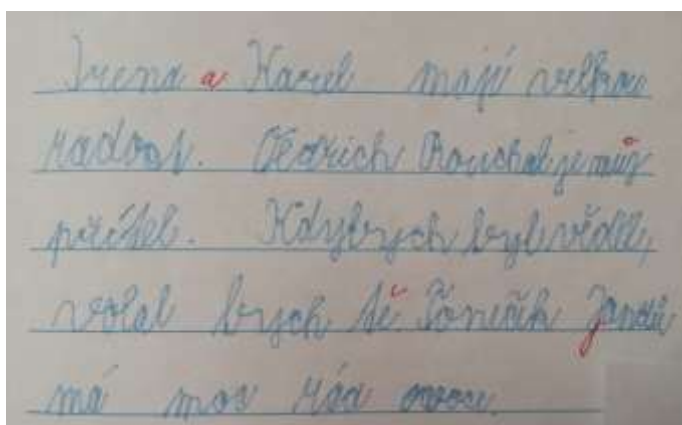 Irena a Karel mají velkou
radost. Oldřich Rouchal je můj
přítel. Kdybych byl věděl,
volal bych tě Toníčik Jandů
má moc rád ovoce.